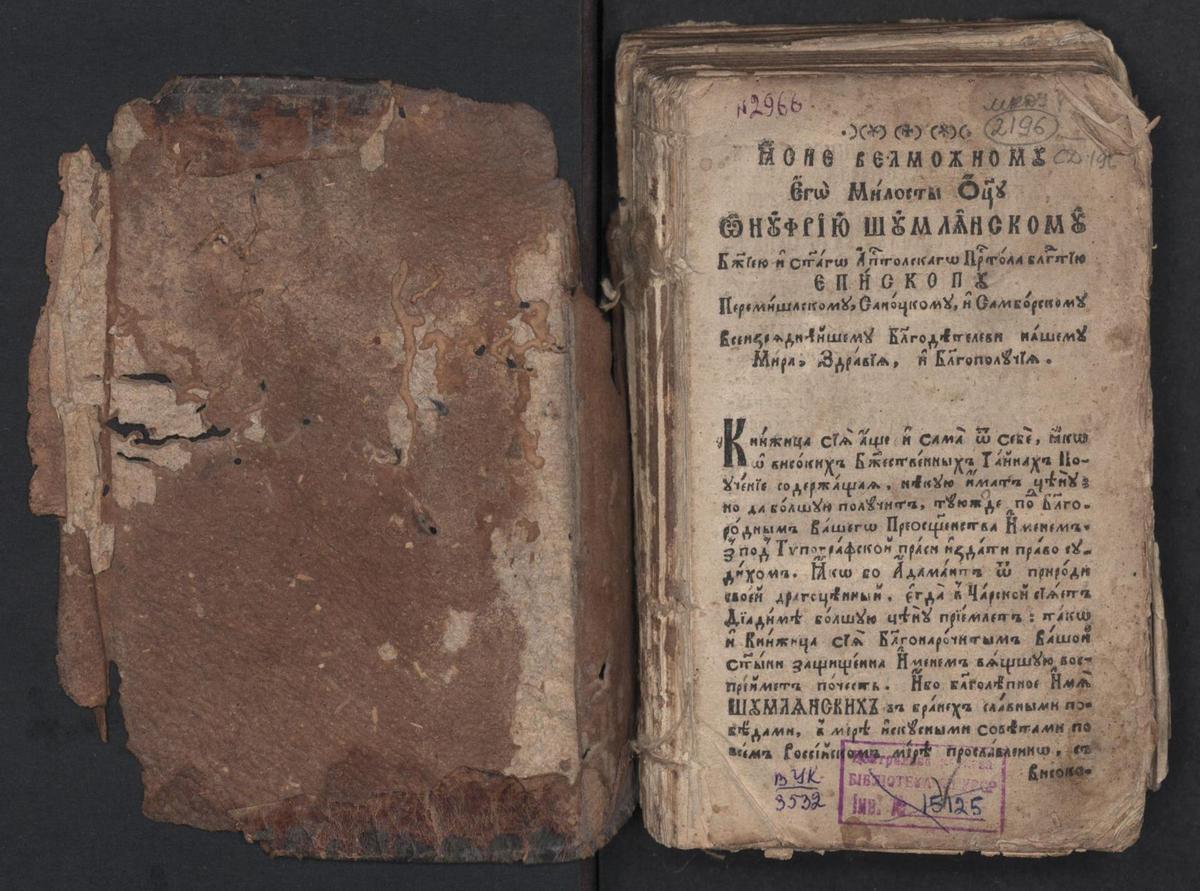 №2966
2196
СД 195
Ꙗ҆сне велможномꙋ
Є҆гѡ Ми́лосты Ѻ҆ц҃ꙋ
Ѡ҆нꙋ́фрїю Шꙋмлѧ́нскомꙋ
Бж҃їею и҆ ст҃а́гѡ А҆пⷭ҇толскагѡ Прⷭ҇то́ла блгⷣтїю
Е҆ПИ́СКОПꙋ
Переми́шлскомꙋ, Сано́цкомꙋ, и҆ Самбо́рскомꙋ
Всеизрядни́йшемꙋ Бл҃годѣ́телеви на́шемꙋ
Ми́ра, Здра́вїѧ, и҆ Бл҃гополꙋ́чїѧ.
Кни́жица сїѧ̀ а҆́ще и҆ сама̀ ѿ себѐ, ꙗ҆́кѡ
ѡ҆ висо́кихъ Бж҃е́ственныхъ Та́йнахъ По-
ꙋче́нїе содержа́щая, нѣ́кую и҆́матъ цѣ́нꙋ:
но да бо́лшꙋю полꙋчи́тъ, тꙋю́жде по́д Бл҃го-
ро́днымъ Ва́шегѡ Преѡсщ҃е́нства И҆́менемъ-
з̾ под̾ Тѵпогра́фской пра́си и҆зда́ти пра́во сꙋ-
ди́хомъ. Ꙗ҆́кѡ бо А҆дама́нтъ ѿ приро́ди
свое́й драгоцѣ́нный, є҆гда̀ в̾ Ца́рской сїѧ́етъ
Дїади́мѣ бо́лшꙋю цѣ́нꙋ прїе́млетъ: та́кѡ
и҆ Кни́жица сїѧ̀ Бл҃гонаро́читымъ Ва́шой
ст҃ы́ни защище́нна И҆́менемъ вѧ́щшꙋю вос-
прїи́метъ по́честь. И҆́бо бл҃голѣ́пное И҆́мѧ
ШꙋМЛѦ́НСКИХЪ въ бра́нехъ сла́вными по-
бѣ́дами, в̾ ми́рѣ и҆скꙋ́сными совѣ́тами по
все́мъ Россі́йскомъ ми́рѣ просла́вленно, съ
високо-
В УК
3532
БІБЛІОТЕКА
Інв. № 15125